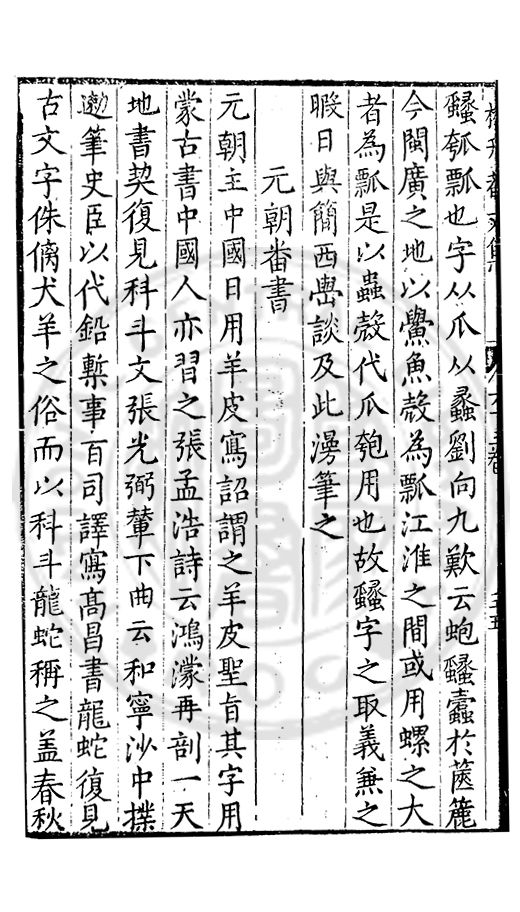 蠿瓠瓢也字从瓜从蠡劉向九歎云蚫蠿蠹於筐簏
今閩廣之地以鱟魚殼為瓢江淮之間或用螺之大
者為瓢是以蟲殼代瓜匏用也故蠿字之取義兼之
暇日與簡西嶨談及此漫筆之
元朝番書
元朝主中國日用羊皮寫詔謂之羊皮聖旨其字用
蒙古書中國人亦習之張孟浩詩云鴻濛再剖一天
地書契復見科斗文張光弼輦下曲云和寧沙中撲
遫筆史臣以代鉛槧事百司譯寫高昌書龍蛇復見
古文字侏㒧犬羊之俗而以科斗龍蛇稱之盖春秋